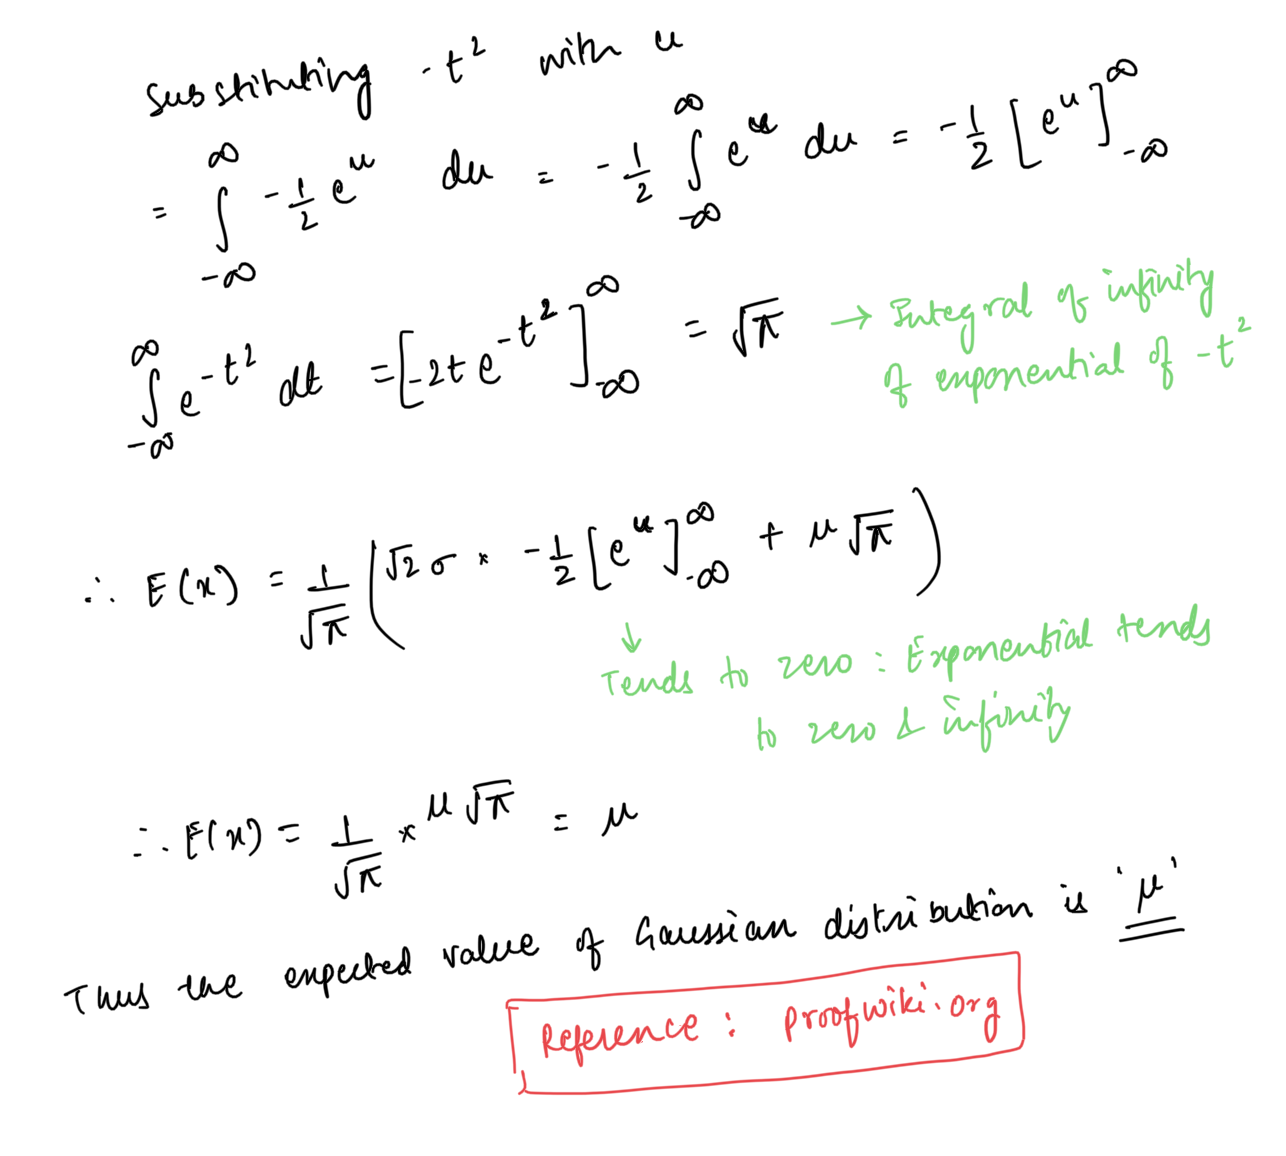 Substituting -t² with u
= ∫_{-∞}^{∞} -1/2 e^u du = -1/2 ∫_{-∞}^{∞} e^u du = -1/2 [e^u]_{-∞}^{∞}
∫_{-∞}^{∞} e^{-t²} dt = [-2t e^{-t²}]_{-∞}^{∞} = √π → Integral of infinity
of exponential of -t²
∴ E(x) = 1/√π (√2 σ * -1/2 [e^u]_{-∞}^{∞} + μ√π)
↓
Tends to zero : Exponential tends
to zero & infinity
∴ E(x) = 1/√π * μ√π = μ
Thus the expected value of Gaussian distribution is 'μ'
Reference : proofwiki.org